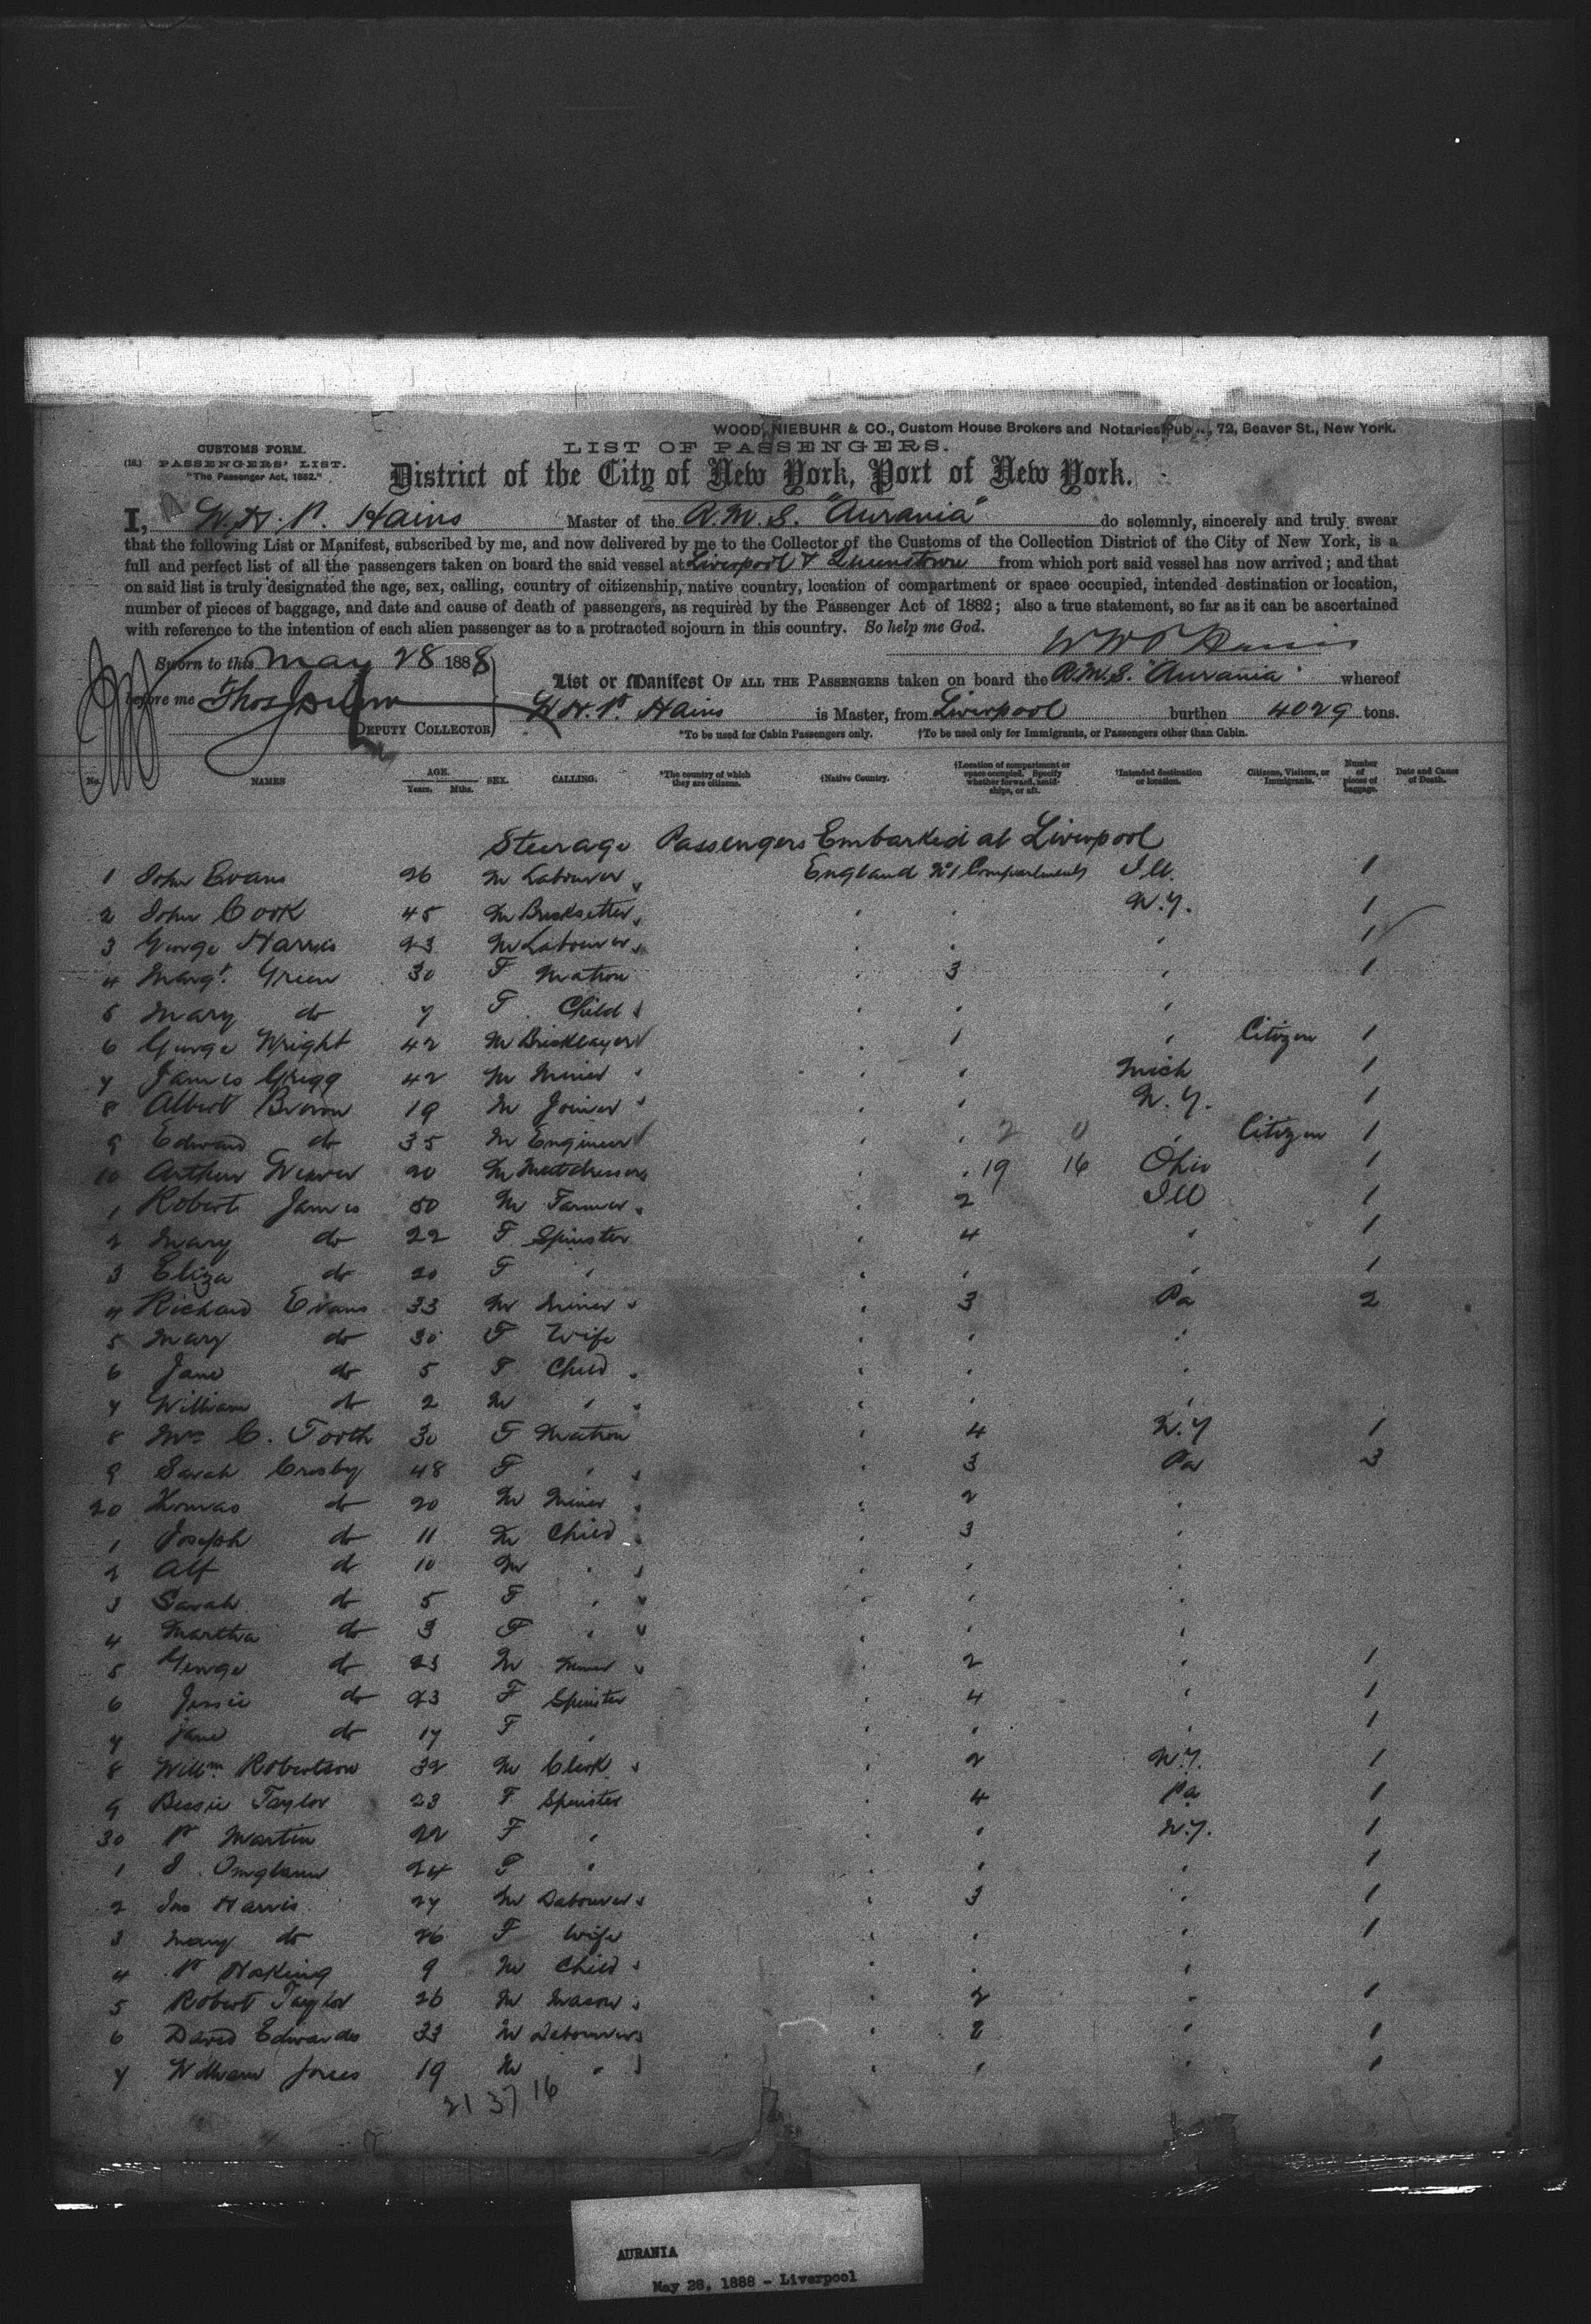 WOOD, NIEBUHR & CO., Custom House Brokers and Notaries Pub..., 72, Beaver St., New York.
CUSTOMS FORM.
LIST OF PASSENGERS.
(18.) PASSENGERS' LIST.
"The Passenger Act, 1882."
District of the City of New York, Port of New York.
I, W. H. P. Hains Master of the R.M.S. "Aurania" do solemnly, sincerely and truly swear
that the following List or Manifest, subscribed by me, and now delivered by me to the Collector of the Customs of the Collection District of the City of New York, is a
full and perfect list of all the passengers taken on board the said vessel at Liverpool & Queenstown from which port said vessel has now arrived; and that
on said list is truly designated the age, sex, calling, country of citizenship, native country, location of compartment or space occupied, intended destination or location,
number of pieces of baggage, and date and cause of death of passengers, as required by the Passenger Act of 1882; also a true statement, so far as it can be ascertained
with reference to the intention of each alien passenger as to a protracted sojourn in this country. So help me God.
Sworn to this May 28 1888
before me Thos
DEPUTY COLLECTOR
List or Manifest OF ALL THE PASSENGERS taken on board the R.M.S. "Aurania" whereof
W. H. P. Hains is Master, from Liverpool burthen 4029 tons.
*To be used for Cabin Passengers only. †To be used only for Immigrants, or Passengers other than Cabin.
No. NAMES AGE. Years. Mths. SEX. CALLING. *The country of which they are citizens. †Native Country. †Location of compartment or space occupied. Specify whether forward, amidships, or aft. †Intended destination or location. Citizens, Visitors, or Immigrants. Number of pieces of baggage. Date and Cause of Death.
Steerage Passengers Embarked at Liverpool
1 John Evans 26 M Labourer England No 1 Compartment Ill. 1
2 John Cook 45 M Bricksetter " " N.Y. 1
3 George Harris 23 M Labourer " " " 1
4 Margt. Green 30 F Matron " 3 " 1
5 Mary do 7 F Child " " "
6 George Wright 42 M Bricklayer " 1 " Citizen 1
7 James Grigg 42 M Miner " " Mich 1
8 Albert Brown 19 M Joiner " " N.Y. 1
9 Edward do 35 M Engineer " " 2 0 " Citizen 1
10 Arthur Weaver 20 M " " 19 16 Ohio 1
1 Robert James 50 M Farmer " 2 Ill 1
2 Mary do 22 F Spinster " 4 " 1
3 Eliza do 20 F " " " " 1
4 Richard Evans 33 M Miner " 3 Pa 2
5 Mary do 30 F Wife " " "
6 Jane do 5 F Child " " "
7 William do 2 M " " " "
8 Mrs C. Forth 30 F Matron " 4 N.Y 1
9 Sarah Crosby 48 F " " 3 Pa 3
20 Thomas do 20 M Miner " 2 "
1 Joseph do 11 M Child " 3 "
2 Alf do 10 M " " " "
3 Sarah do 5 F " " " "
4 Martha do 3 F " " " "
5 George do 23 M Miner " 2 " 1
6 Jessie do 23 F Spinster " 4 " 1
7 Jane do 17 F " " " " 1
8 Willm. Robertson 32 M Clerk " 2 N.Y. 1
9 Bessie Taylor 23 F Spinster " 4 Pa 1
30 P Martin 22 F " " " N.Y. 1
1 24 F " " " " 1
2 Jno Harris 27 M Labourer " 3 " 1
3 Mary do 26 F Wife " " " 1
4 P Hoking 9 M Child " " "
5 Robert Taylor 26 M Mason " 2 " 1
6 David Edwards 33 M Labourer " 2 " 1
7 William Jones 19 M " " " " 1
21 37 16
AURANIA
May 28, 1888 - Liverpool